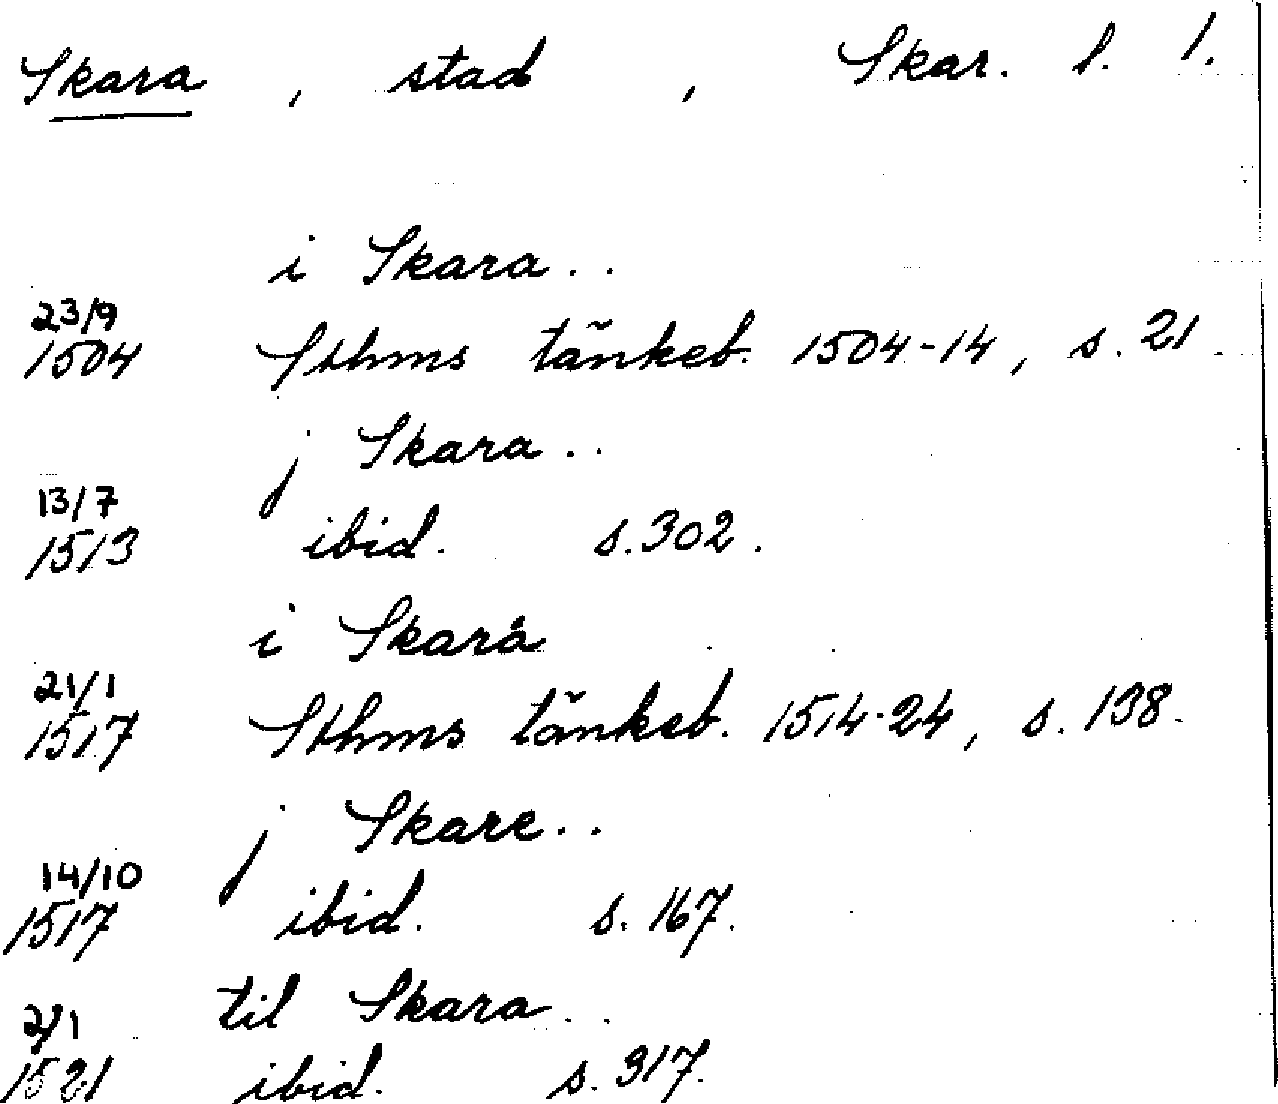 Skara , stad , Skar. l. 1.
i Skara..
23/9
1504 Sthms tänkeb. 1504-14, s. 21.
j Skara..
13/7
1513 ibid. s. 302.
i Skara
21/1
1517 Sthms tänkeb. 1514-24, s. 138.
j Skare..
14/10
1517 ibid. s. 167.
til Skara..
2/1
1521 ibid. s. 317.